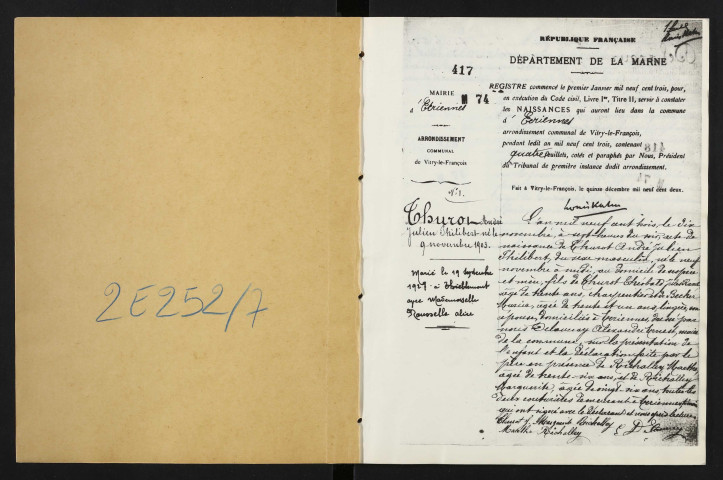 2E252/7
RÉPUBLIQUE FRANÇAISE
DÉPARTEMENT DE LA MARNE
417
MAIRIE
M 74
d'Ecriennes
ARRONDISSEMENT
COMMUNAL
de Vitry-le-François
REGISTRE commencé le premier Janvier mil neuf cent trois, pour,
en exécution du Code civil, Livre Ier, Titre II, servir à constater
les NAISSANCES qui auront lieu dans la commune
d'Ecriennes
arrondissement communal de Vitry-le-François,
pendant ledit an mil neuf cent trois, contenant
quatre feuillets, cotés et paraphés par Nous, Président
du Tribunal de première instance dudit arrondissement.
Fait à Vitry-le-François, le quinze décembre mil neuf cent deux.
N° 1.
Thurot André
Julien Philibert né le
9 novembre 1903.
Marié le 19 septembre
à Thiéblemont
avec Mademoiselle
Alice
L'an mil neuf cent trois, le dix
novembre, à sept heures du soir, acte de
naissance de Thurot André Julien
Philibert, du sexe masculin, né le neuf
novembre à midi, au domicile de ses père
et mère, fils de Thurot
âgé de trente ans, charpentier et de
Maria, âgée de trente et un ans, lingère, son
épouse, domiciliés à Ecriennes, dressé par
nous Delaunay Alexandre Ernest, maire
de la commune, sur la présentation de
l'enfant et la déclaration faite par le
père en présence de Richalley Marthe
âgée de trente-six ans, et de Richalley
Marguerite, âgée de vingt-six ans, toutes les
deux couturières demeurant à Ecriennes
qui ont signé avec le déclarant et nous après lecture.
Thurot J. Marguerite Richalley
Marthe Richalley E. Delaunay